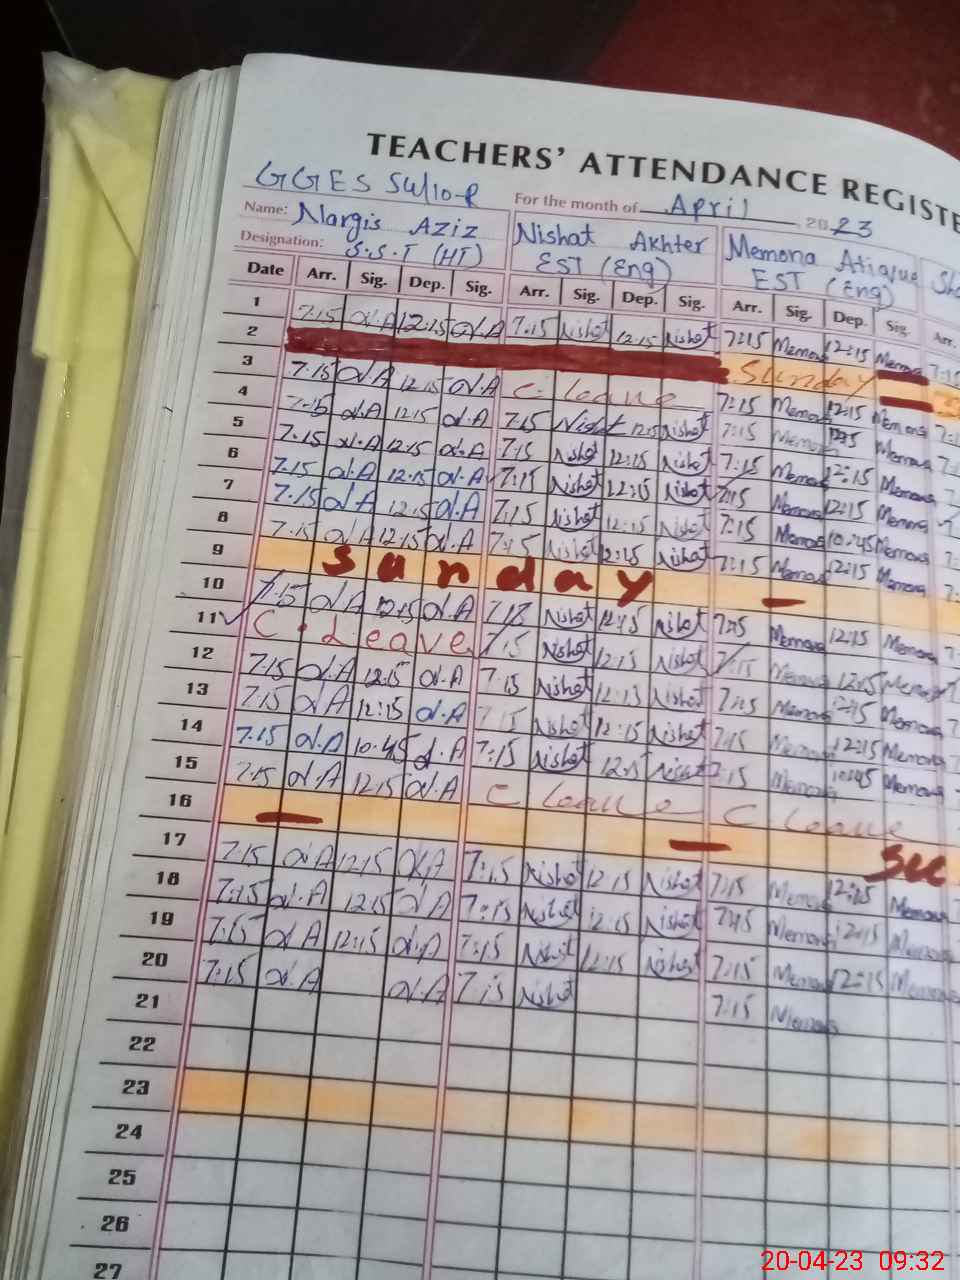 TEACHERS' ATTENDANCE REGISTE
GGES SW/10-R
For the month of April, 2023
Name: Nargis Aziz Nishat Akhter Memona Atique
Designation: S.S.T (HT) EST (Eng) EST (Eng)
Date Arr. Sig. Dep. Sig. Arr. Sig. Dep. Sig. Arr. Sig. Dep. Sig. Arr.
1 7.15 N.A 12:15 N.A 7.15 Nishat 12:15 Nishat 7:15 Memona 12:15 Memona 7:15
2 Sunday
3 7.15 N.A 12.15 N.A C. leave 7:15 Memona 12:15 Memona
4 7.15 N.A 12.15 N.A 7.15 Nishat 12:15 Nishat 7:15 Memona 12:15 Memona
5 7.15 N.A 12.15 N.A 7:15 Nishat 12:15 Nishat 7:15 Memona 12:15 Memona
6 7.15 N.A 12.15 N.A 7:15 Nishat 12:15 Nishat 7:15 Memona 12:15 Memona
7 7.15 N.A 12.15 N.A 7:15 Nishat 12:15 Nishat 7:15 Memona 10:45 Memona
8 7.15 N.A 12.15 N.A 7:15 Nishat 12:15 Nishat 7:15 Memona 12:15 Memona
9 Sunday
10 7.15 N.A 12:15 N.A Nishat 12:15 Nishat 7:15 Memona 12:15 Memona
11 C. Leave 7:15 Nishat 12:15 Nishat 7:15 Memona 12:15 Memona
12 7.15 N.A 12:15 N.A 7:15 Nishat 12:15 Nishat 7:15 Memona 12:15 Memona
13 7.15 N.A 12:15 N.A 7:15 Nishat 12:15 Nishat 7:15 Memona 12:15 Memona
14 7.15 N.A 10.45 N.A 7:15 Nishat 12:15 Nishat 7:15 Memona 10:45 Memona
15 7.15 N.A 12:15 N.A C leave C leave
16
17 7.15 N.A 12:15 N.A 7:15 Nishat 12:15 Nishat 7:15 Memona 12:15 Memona
18 7:15 N.A 12:15 N.A 7:15 Nishat 12:15 Nishat 7:15 Memona 12:15 Memona
19 7:15 N.A 12:15 N.A 7:15 Nishat 12:15 Nishat 7:15 Memona 12:15 Memona
20 7:15 N.A N.A 7:15 Nishat 7:15 Memona
21
22
23
24
25
26
27
20-04-23 09:32